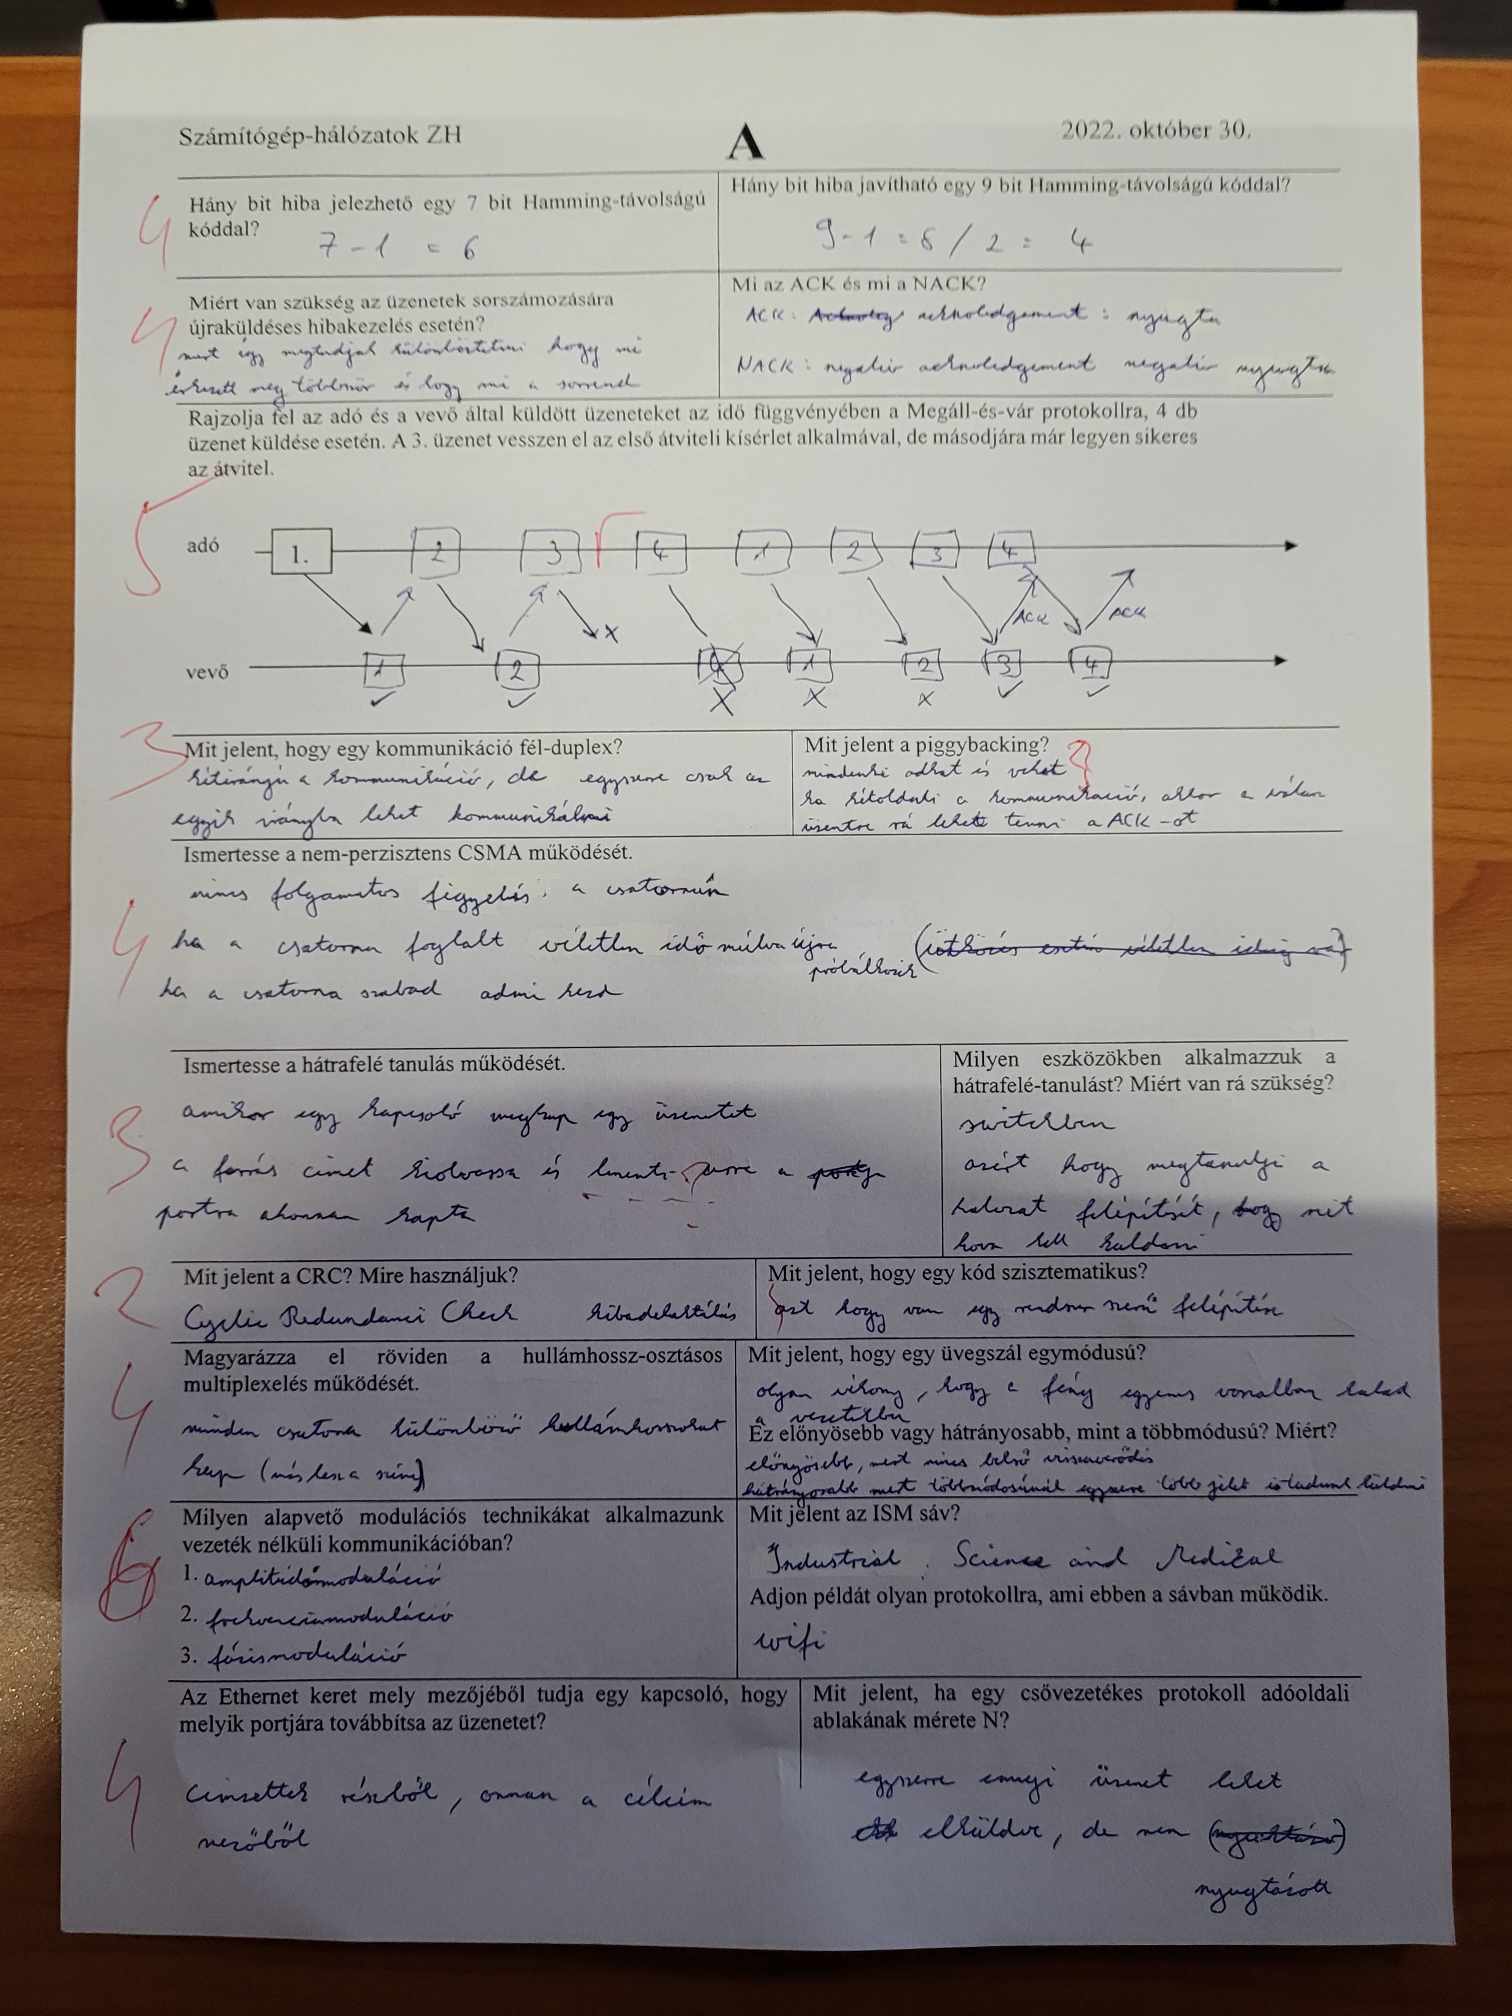 Számítógép-hálózatok ZH
A
2022. október 30.
4
Hány bit hiba jelezhető egy 7 bit Hamming-távolságú
kóddal?
7 - 1 = 6
Hány bit hiba javítható egy 9 bit Hamming-távolságú kóddal?
9-1 = 8 / 2 = 4
4
Miért van szükség az üzenetek sorszámozására
újraküldéses hibakezelés esetén?
mert így megtudjuk különböztetni hogy mi
érkezett meg többször és hogy mi a sorrend
Mi az ACK és mi a NACK?
ACK: acknoledgement : nyugta
NACK: negativ acknoledgement negativ nyugta
Rajzolja fel az adó és a vevő által küldött üzeneteket az idő függvényében a Megáll-és-vár protokollra, 4 db
üzenet küldése esetén. A 3. üzenet vesszen el az első átviteli kísérlet alkalmával, de másodjára már legyen sikeres
az átvitel.
5
adó 1. 2 3 4 1 2 3 4
X ACK ACK
vevő 1 2 1 2 3 4
✓ ✓ X X X ✓ ✓
3
Mit jelent, hogy egy kommunikáció fél-duplex?
kétirányú a kommunikáció, de egyszerre csak az
egyik irányba lehet kommunikálni
Mit jelent a piggybacking?
mindenki adhat és vehet
ha kétoldali a kommunikáció, akkor a válasz
üzentre rá lehet tenni a ACK-ot
Ismertesse a nem-perzisztens CSMA működését.
nincs folgamatos figyelés a csatornán
4
ha a csatorna foglalt véletlen idő múlva újra
próbálkozik
(ütközés esetén véletlen ideig vár)
ha a csatorna szabad adni kezd
Ismertesse a hátrafelé tanulás működését.
amikor egy kapcsoló megkap egy üzenetet
3
a forrás cimet kiolvassa és lementi erre a
portra ahonnan kapta
Milyen eszközökben alkalmazzuk a
hátrafelé-tanulást? Miért van rá szükség?
switchben
azért hogy megtanulja a
halozat felépítését, hogy mit
hova kell kuldeni
2
Mit jelent a CRC? Mire használjuk?
Cyclic Redundanci Check hibadetektálás
Mit jelent, hogy egy kód szisztematikus?
azt hogy van egy rendszer szerű felépítése
4
Magyarázza el röviden a hullámhossz-osztásos
multiplexelés működését.
minden csatorna különböző hullámhosszokat
kap (más lesz a szine)
Mit jelent, hogy egy üvegszál egymódusú?
olyan vékony, hogy a fény egyenes vonalban halad
a vezetékben
Ez előnyösebb vagy hátrányosabb, mint a többmódusú? Miért?
előnyösebb, mert nincs belső visszaverődés
hátrányosabb mert többmódosúnál egyszerre több jelet is tudunk küldeni
6
Milyen alapvető modulációs technikákat alkalmazunk
vezeték nélküli kommunikációban?
1. amplitúdómoduláció
2. frekvenciamoduláció
3. fázismoduláció
Mit jelent az ISM sáv?
Industrial Science and Medical
Adjon példát olyan protokollra, ami ebben a sávban működik.
wifi
4
Az Ethernet keret mely mezőjéből tudja egy kapcsoló, hogy
melyik portjára továbbítsa az üzenetet?
cimzettek részből, onnan a célcím
mezőből
Mit jelent, ha egy csővezetékes protokoll adóoldali
ablakának mérete N?
egyszerre ennyi üzenet lehet
elküldve, de nem
nyugtázott